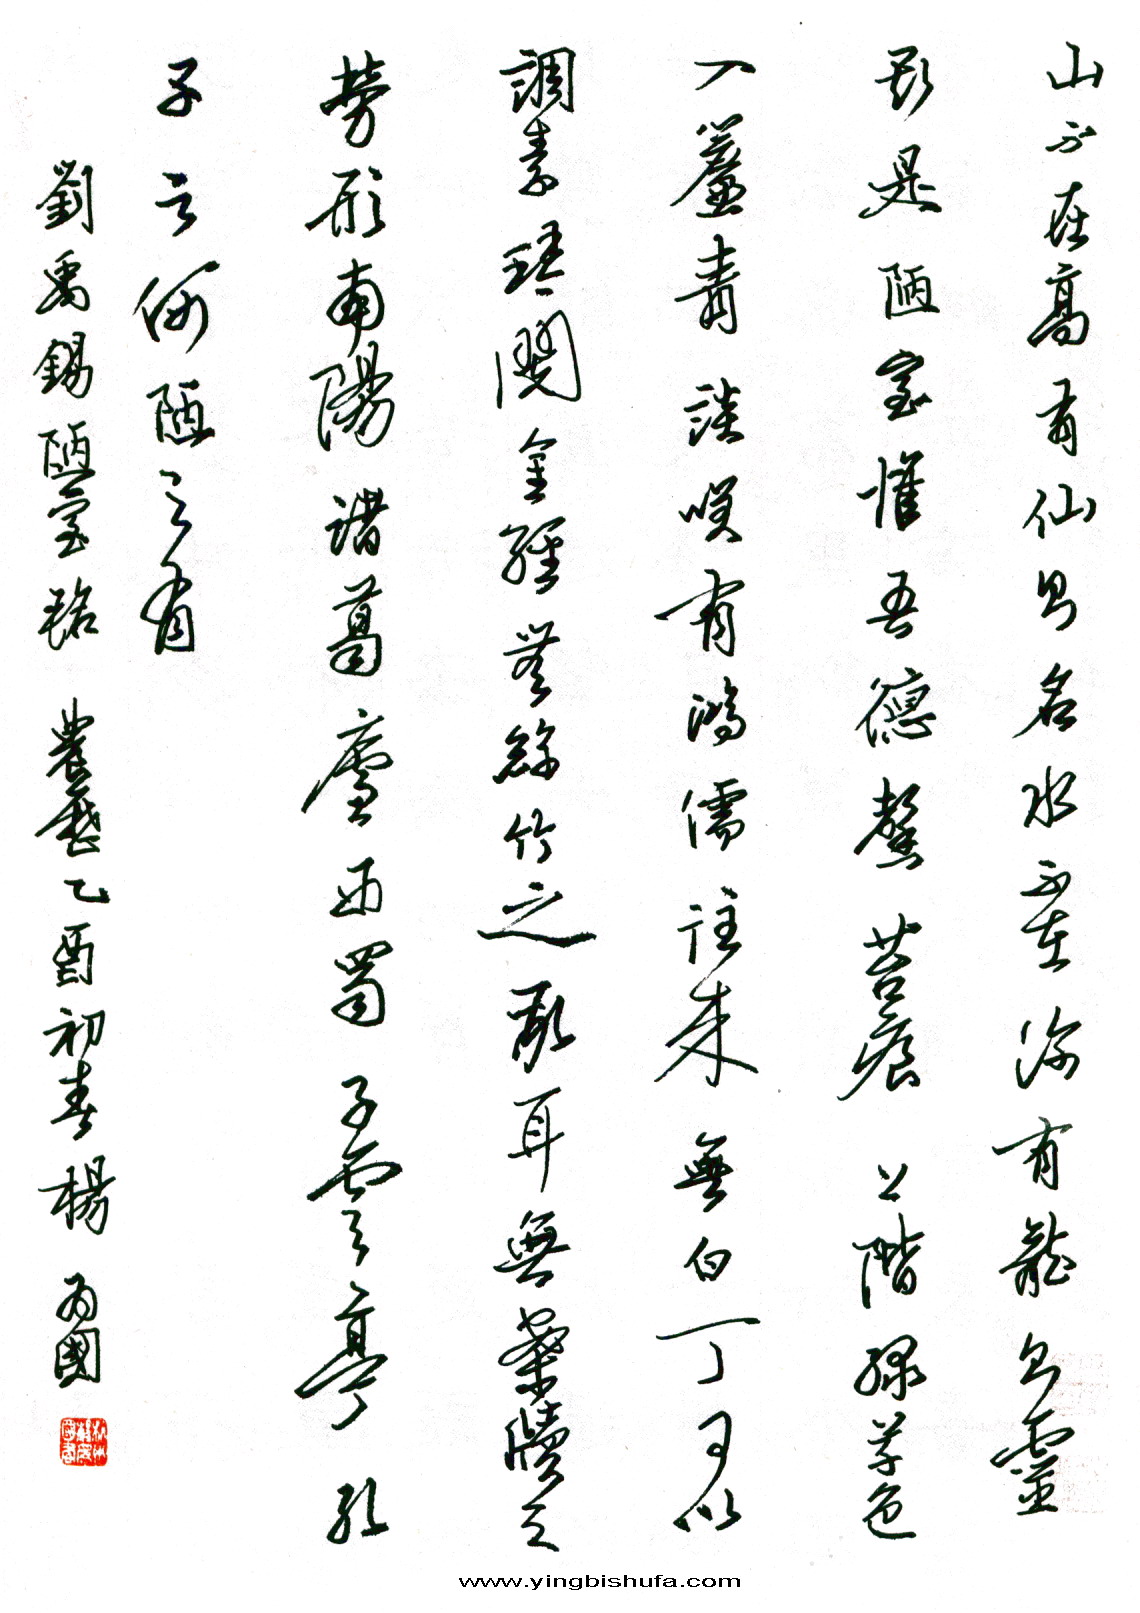 山不在高有仙則名水不在深有龍則靈
斯是陋室惟吾德馨苔痕上階綠草色
入簾青談笑有鴻儒往來無白丁可以
調素琴閱金經無絲竹之亂耳無案牘之
勞形南陽諸葛廬西蜀子雲亭孔
子云何陋之有
劉禹錫陋室銘 農曆乙酉初春楊為國
www.yingbishufa.com